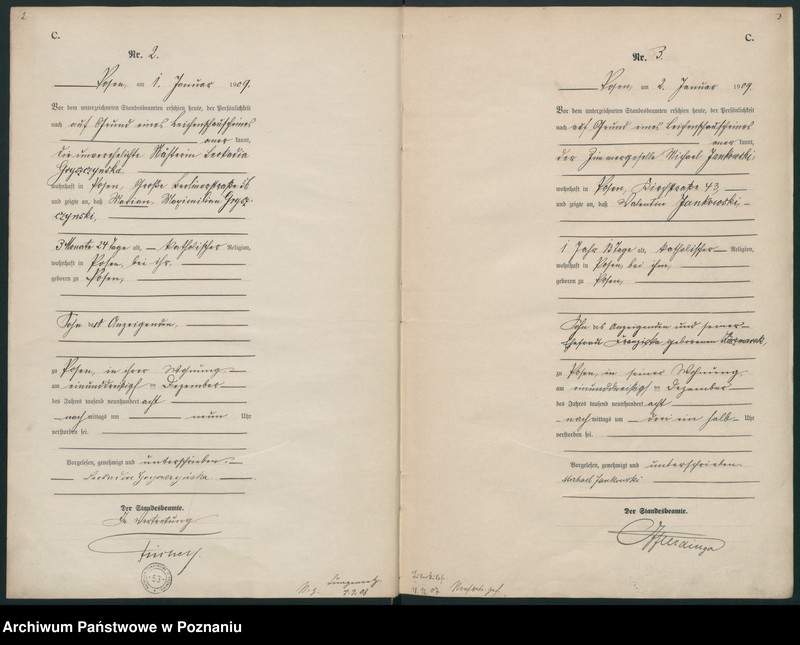 2
C.
Nr. 2.
Posen, am 1. Januar 1909.
Vor dem unterzeichneten Standesbeamten erschien heute, der Persönlichkeit
nach auf Grund eines Leichenschauscheines
aner kannt,
die unverehelichte Näherin Leokadia
Gryszczynska
wohnhaft in Posen, Große Berlinerstraße
und zeigte an, daß Marian, Maximilian Grysz-
czynski,
3 Monate 24 Tage alt, katholischer Religion,
wohnhaft in Posen, bei ihr.
geboren zu Posen,
Sohn der Anzeigenden,
zu Posen, in ihrer Wohnung
am einunddreißigsten Dezember
des Jahres tausend neunhundert acht
nach mittags um neun Uhr
verstorben sei.
Vorgelesen, genehmigt und unterschrieben.
Leokadia Gryszczyńska
Der Standesbeamte.
In Vertretung
53
3
C.
Nr. 3.
Posen, am 2. Januar 1909.
Vor dem unterzeichneten Standesbeamten erschien heute, der Persönlichkeit
nach auf Grund eines Leichenschauscheines
aner kannt,
der Zimmergeselle Michael Jankowski
wohnhaft in Posen, 43,
und zeigte an, daß Valentin Jankowski
1 Jahr Tage alt, katholischer Religion,
wohnhaft in Posen, bei ihm,
geboren zu Posen,
Sohn des Anzeigenden und seiner
Ehefrau Franziska geborenen
zu Posen, in seiner Wohnung
am einunddreißigsten Dezember
des Jahres tausend neunhundert acht
nach mittags um drei ein halb Uhr
verstorben sei.
Vorgelesen, genehmigt und unterschrieben
Michael Jankowski
Der Standesbeamte.
Archiwum Państwowe w Poznaniu